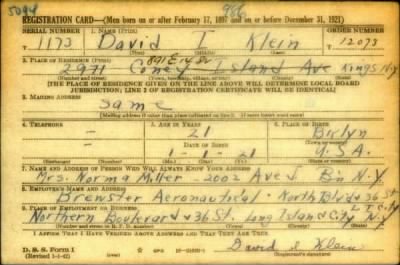 5094
REGISTRATION CARD—(Men born on or after February 17, 1897 and on or before December 31, 1921)
SERIAL NUMBER 1. NAME (Print) ORDER NUMBER
1173 David I Klein 12073
2. PLACE OF RESIDENCE (Print)
2971 Coney Island Ave Kings N.Y.
(Number and street) (Town, township, village, or city) (County) (State)
[THE PLACE OF RESIDENCE GIVEN ON THE LINE ABOVE WILL DETERMINE LOCAL BOARD
JURISDICTION; LINE 2 OF REGISTRATION CERTIFICATE WILL BE IDENTICAL]
3. MAILING ADDRESS
Same
[Mailing address if other than place indicated on line 2. If same insert word same]
4. TELEPHONE 5. AGE IN YEARS 6. PLACE OF BIRTH
— 21 Bklyn
DATE OF BIRTH (Town or county)
— 1-1-21 U.S.A.
(Exchange) (Number) (Mo.) (Day) (Yr.) (State or country)
7. NAME AND ADDRESS OF PERSON WHO WILL ALWAYS KNOW YOUR ADDRESS
Mrs. Norma Miller - 2002 Ave J Bn N.Y.
8. EMPLOYER'S NAME AND ADDRESS
Brewster Aeronautical - North Blvd & 36 St
L.I. City
9. PLACE OF EMPLOYMENT OR BUSINESS
Northern Boulevard & 36 St. Long Island City N.Y.
(Number and street or R. F. D. number) (Town) (County) (State)
I AFFIRM THAT I HAVE VERIFIED ABOVE ANSWERS AND THAT THEY ARE TRUE.
D. S. S. Form 1
(Revised 1-1-42) David I Klein
(Registrant's signature)